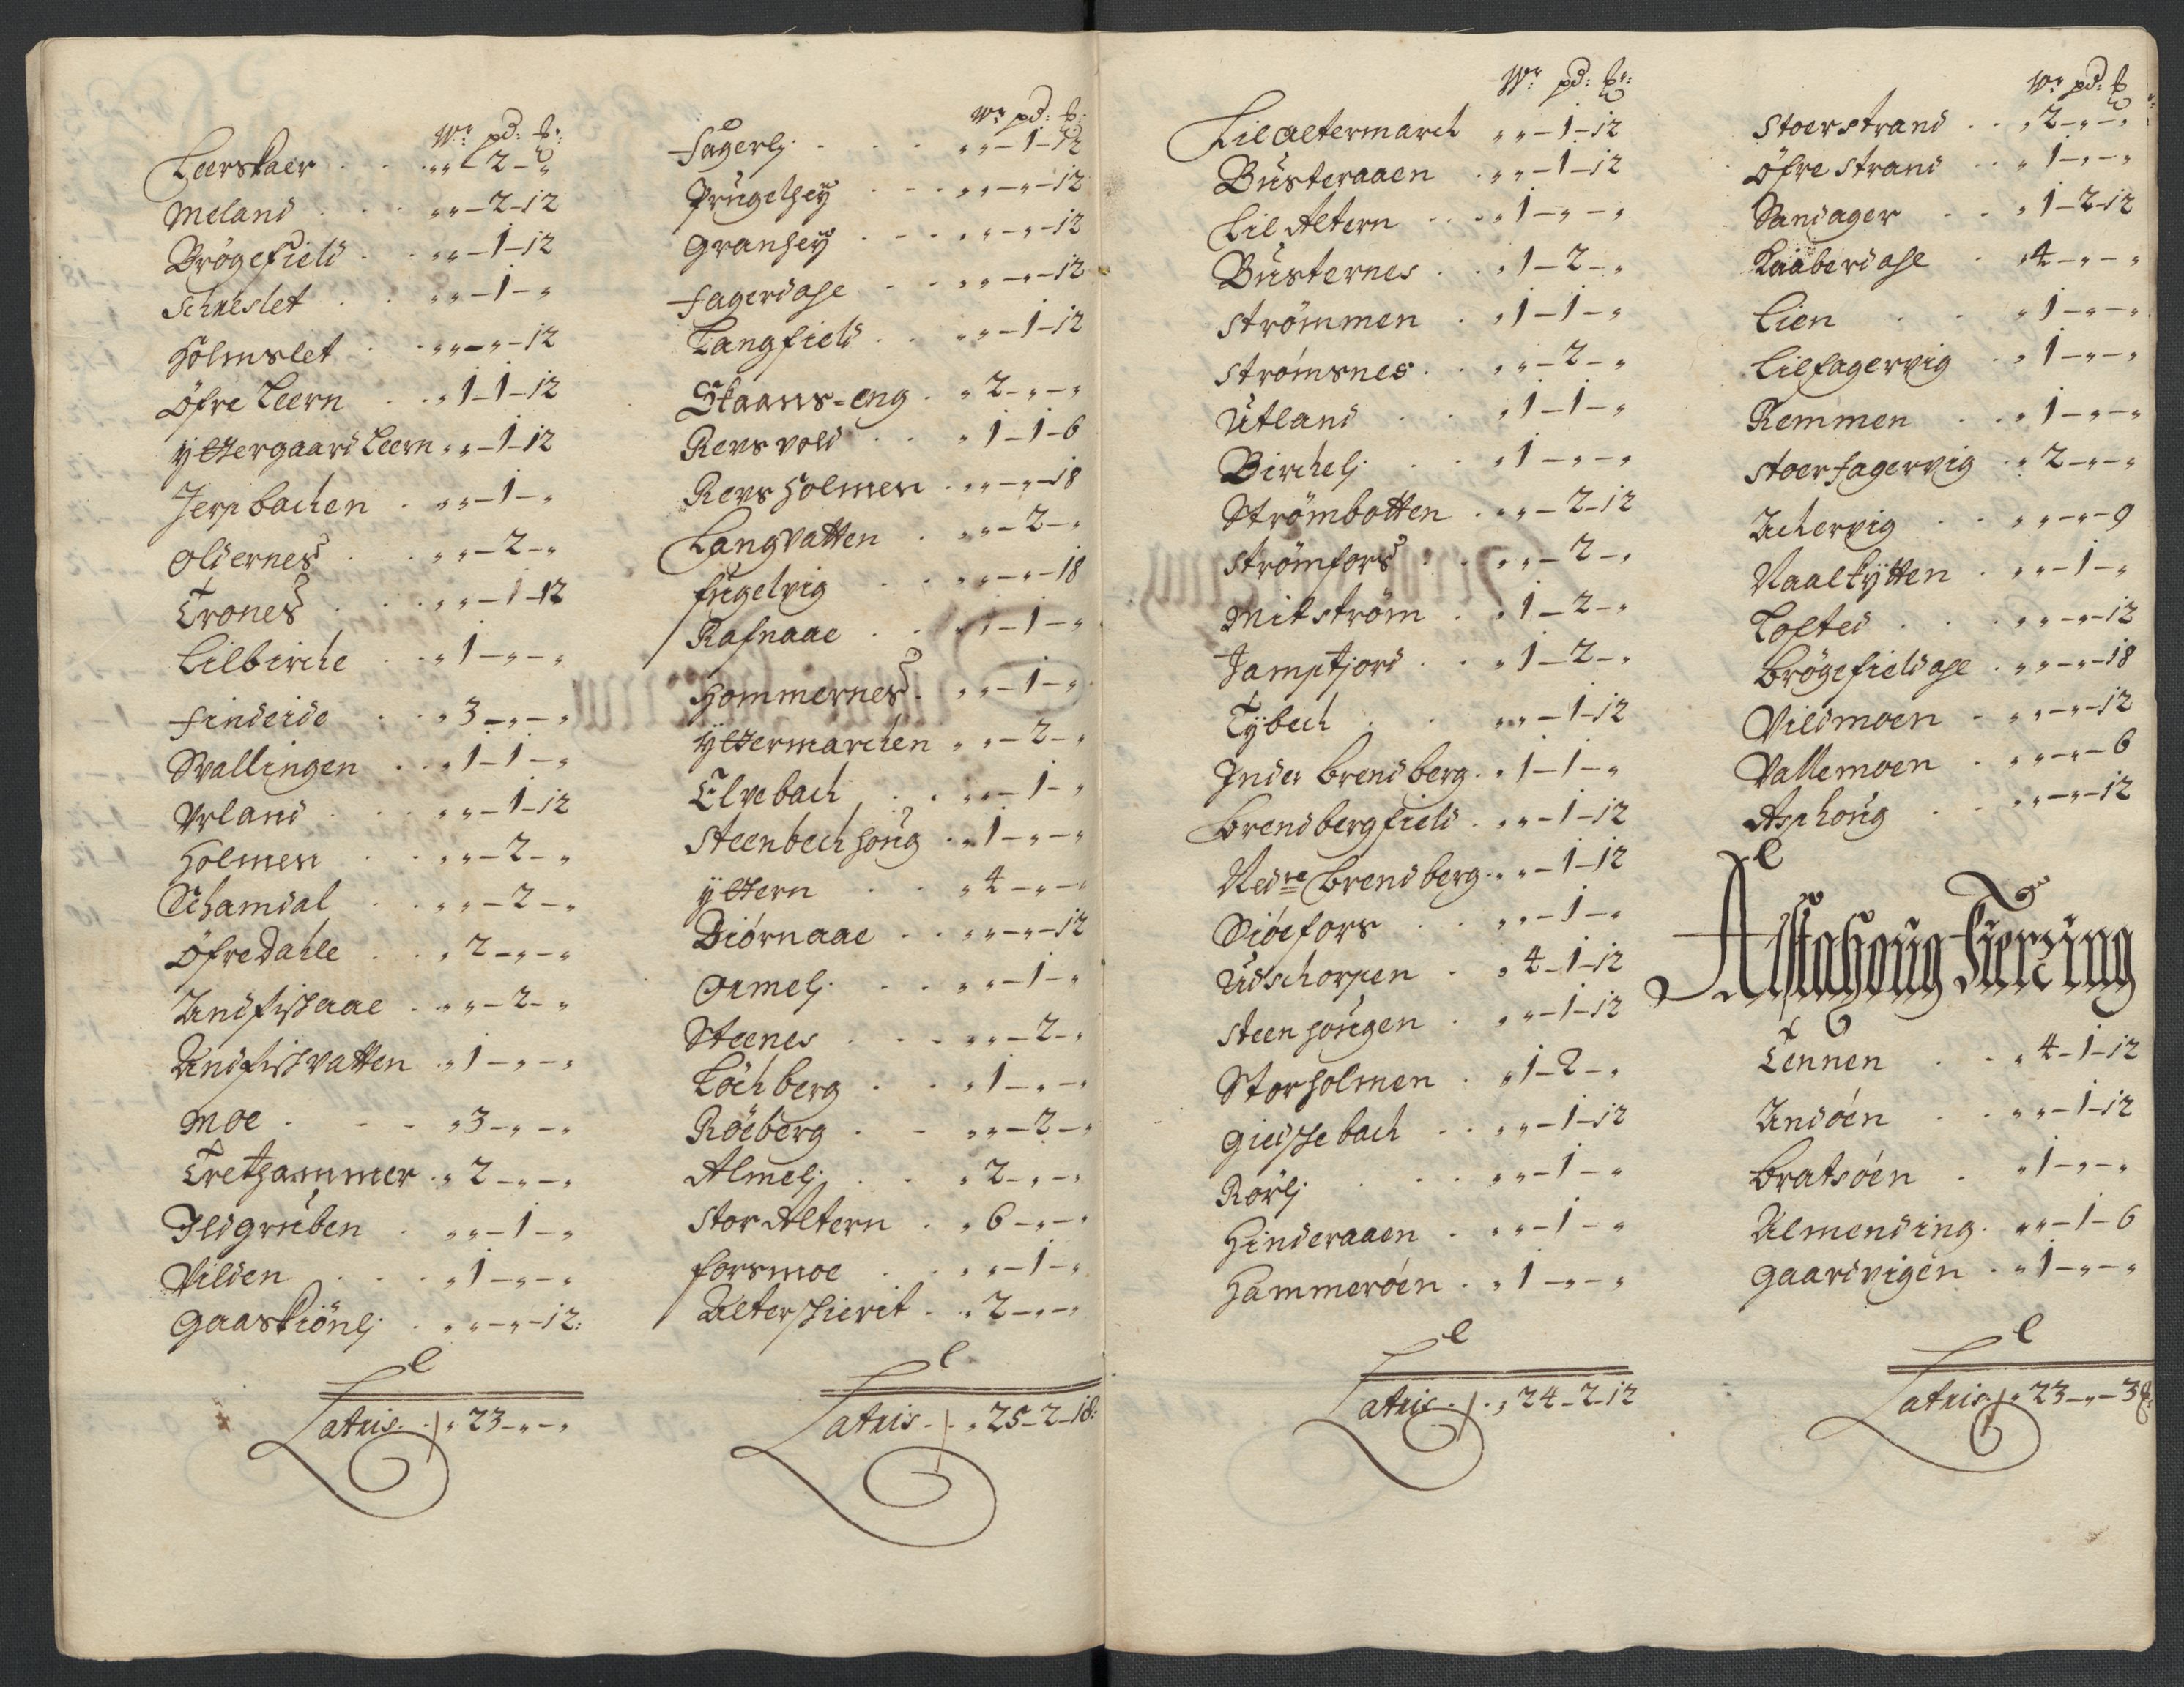 Wr pd: ℔:
Leerskaer . . „ „ – 2 – „
Meland . . „ „ – 2 – 12
Brøgefield . „ „ – 1 – 12
Schneslet . „ „ – 1 – „
Holmslet . „ „ – „ – 12
Öfre Leern . „ 1 – 1 – 12
Yttergaard Leern „ „ – 1 – 12
Jerpbachen . „ „ – 1 – „
Oldernes . „ „ – 2 – „
Trones . . „ „ – 1 – 12
Lilbirche . „ 1 – „ – „
Findeide . „ 3 – „ – „
Svallingen . „ 1 – 1 – „
Urland . . „ „ – 1 – 12
Holmen . . „ „ – 2 – „
Schamdal . „ „ – 2 – „
Öfre Dahle . „ 2 – „ – „
Undfishaae . „ „ – 2 – „
Undfishvatten . „ 1 – „ – „
Moe . . . „ 3 – „ – „
Trethammer . „ 2 – „ – „
Ildgruben . „ „ – 1 – „
Vilden . . „ 1 – „ – „
Gaaskiönlj . „ „ – „ – 12:
Latris . „ 23 – „ – „
Wr pd: ℔:
Fagerlj . . „ „ – 1 – 12
Prügelhey . . „ „ – „ – 12
Granhey . . „ „ – „ – 12
Fagerdahl . . „ „ – „ – 12
Langfield . . „ „ – 1 – 12
Skaans=eng . „ 2 – „ – „
Revsvold . . „ 1 – 1 – 6
Revsholmen . „ „ – „ – 18
Langvatten . „ „ – 2 – „
Fugelvig . . „ „ – „ – 18
Rafnaae . . „ „ – 1 – „
Hommernes . „ „ – 1 – „
Yttermarchen „ „ – 2 – „
Elvebach . . „ „ – 1 – „
Steenbechhoug . „ 1 – „ – „
Yttern . . „ 4 – „ – „
Biórnaae . . „ „ – „ – 12
Ormelj . . „ „ – 1 – „
Steenes . . „ „ – 2 – „
Löchberg . . „ 1 – „ – „
Röeberg . . „ „ – 2 – „
Almelj . . „ 2 – „ – „
Stor Altern . „ 6 – „ – „
Forsmoe . . „ „ – 1 – „
Alterhierit . „ 2 – „ – „
Latris . „ 25 – 2 – 18:
Wr pd: ℔:
Lilaltermarch „ „ – 1 – 12
Büsteraaen . „ „ – 1 – 12
Lil Altern . . „ 1 – „ – „
Büsternes . . „ 1 – 2 – „
Strömmen . „ 1 – 1 – „
Strömsnes . . „ „ – 2 – „
Utland . . „ 1 – 1 – „
Birchelj . . „ 1 – „ – „
Strömbotten . „ „ – 2 – 12
Strömfors . „ „ – 2 – „
Mitström . „ 1 – 2 – „
Jamptjord . . „ 1 – 2 – „
Tybech . . „ „ – 1 – 12
Inder Brendberg . „ 1 – 1 – „
Brendbergfield . „ „ – 1 – 12
Nedre Brendberg . „ „ – 1 – 12
Siöefors . . „ „ – 1 – „
Udschorpen . „ 4 – 1 – 12
Steenhougen . „ „ – 1 – 12
Storholmen . „ 1 – 2 – „
Giedsebach . . „ „ – 1 – 12
Rörlj . . „ „ – 1 – „
Hinderaaen . „ „ – 1 – „
Hammeróen . „ 1 – „ – „
Latris . „ 24 – 2 – 12
Wr pd: ℔:
Stoerstrand . . „ 2 – „ – „
Öfre Strand . . „ 1 – „ – „
Sandager . . „ 1 – 2 – 12
Raaberdahl . „ 4 – „ – „
Lien . . „ 1 – „ – „
Lilfagervig . „ 1 – „ – „
Remmen . . „ 1 – „ – „
Stoerfagervig . „ 2 – „ – „
Achervig . . „ „ – „ – 9
Naalkytten . „ „ – 1 – „
Tofted . . „ „ – „ – 12
Brøgefieldahl . „ „ – „ – 18
Vildmoen . „ „ – „ – 12
Vallemoen . „ „ – „ – 6
Asphoug . . „ „ – „ – 12
Alstahoug Fierding
Tennen . . „ 4 – 1 – 12
Andóen . . „ „ – 1 – 12
Bratsóen . „ 1 – „ – „
Almending . „ „ – 1 – 6
Gaardvigen . „ 1 – „ – „
Latris „ 23 – „ – 3 ℔: